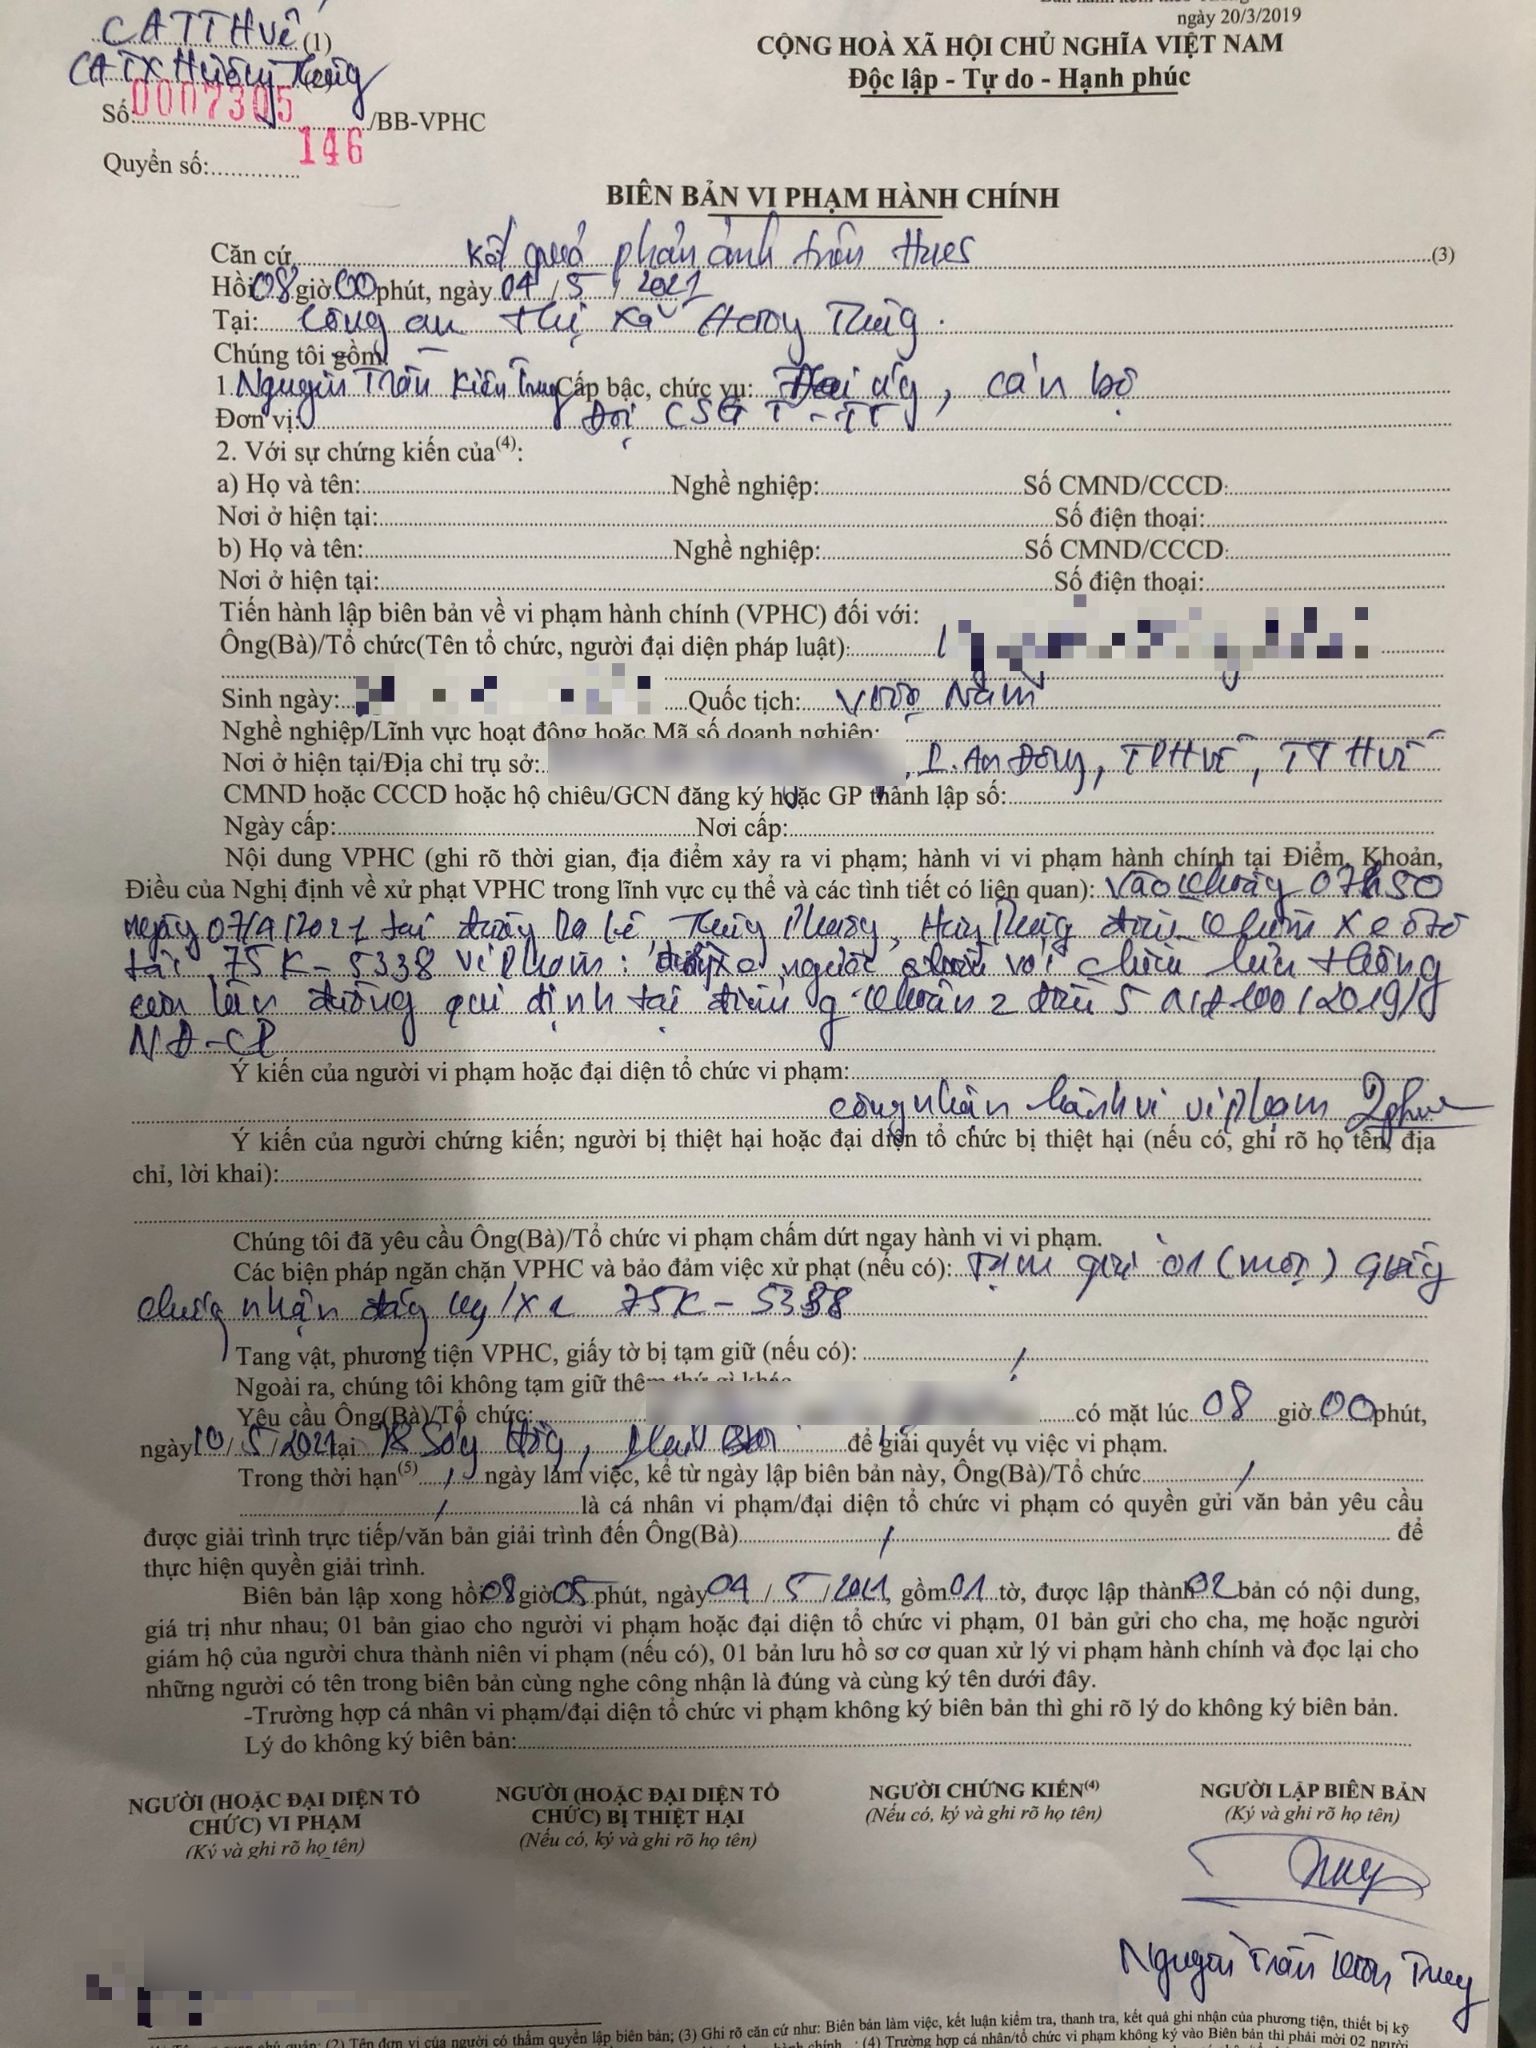 ngày 20/3/2019
CATTHuế (1)
CATX Hương Thủy
CỘNG HOÀ XÃ HỘI CHỦ NGHĨA VIỆT NAM
Độc lập - Tự do - Hạnh phúc
Số: 0007305 /BB-VPHC
Quyển số: 146
BIÊN BẢN VI PHẠM HÀNH CHÍNH
Căn cứ kết quả phản ánh trên Hues (3)
Hồi 08 giờ 00 phút, ngày 04/5/2021
Tại: Công an thị xã Hương Thủy.
Chúng tôi gồm:
1. Nguyễn Trần Kiên Trung Cấp bậc, chức vụ: Đại úy, cán bộ
Đơn vị: Đội CSGT-TT
2. Với sự chứng kiến của(4):
a) Họ và tên: Nghề nghiệp: Số CMND/CCCD:
Nơi ở hiện tại: Số điện thoại:
b) Họ và tên: Nghề nghiệp: Số CMND/CCCD:
Nơi ở hiện tại: Số điện thoại:
Tiến hành lập biên bản về vi phạm hành chính (VPHC) đối với:
Ông(Bà)/Tổ chức(Tên tổ chức, người đại diện pháp luật):
Sinh ngày: Quốc tịch: Việt Nam
Nghề nghiệp/Lĩnh vực hoạt động hoặc Mã số doanh nghiệp:
Nơi ở hiện tại/Địa chỉ trụ sở: , P. An Đông, TP Huế, TT Huế
CMND hoặc CCCD hoặc hộ chiếu/GCN đăng ký hoặc GP thành lập số:
Ngày cấp: Nơi cấp:
Nội dung VPHC (ghi rõ thời gian, địa điểm xảy ra vi phạm; hành vi vi phạm hành chính tại Điểm, Khoản,
Điều của Nghị định về xử phạt VPHC trong lĩnh vực cụ thể và các tình tiết có liên quan): Vào khoảng 07h50
ngày 07/4/2021 tại đường Dạ Lê, Thủy Phương, Hương Thủy điều khiển xe ôtô
tải 75K-5338 vi phạm: người chiều với chiều lưu thông
của làn đường qui định tại điểm g khoản 2 điều 5 NĐ 100/2019/
NĐ-CP
Ý kiến của người vi phạm hoặc đại diện tổ chức vi phạm:
công nhận hành vi vi phạm
Ý kiến của người chứng kiến; người bị thiệt hại hoặc đại diện tổ chức bị thiệt hại (nếu có, ghi rõ họ tên, địa
chỉ, lời khai):
Chúng tôi đã yêu cầu Ông(Bà)/Tổ chức vi phạm chấm dứt ngay hành vi vi phạm.
Các biện pháp ngăn chặn VPHC và bảo đảm việc xử phạt (nếu có): Tạm giữ 01 (một) giấy
chứng nhận đăng ký xe 75K-5338
Tang vật, phương tiện VPHC, giấy tờ bị tạm giữ (nếu có): /
Ngoài ra, chúng tôi không tạm giữ thêm thứ gì khác
Yêu cầu Ông(Bà)/Tổ chức: có mặt lúc 08 giờ 00 phút,
ngày 10/5/2021 tại Sóng Hồng, Phú Bài để giải quyết vụ việc vi phạm.
Trong thời hạn(5) / ngày làm việc, kể từ ngày lập biên bản này, Ông(Bà)/Tổ chức /
/ là cá nhân vi phạm/đại diện tổ chức vi phạm có quyền gửi văn bản yêu cầu
được giải trình trực tiếp/văn bản giải trình đến Ông(Bà) / để
thực hiện quyền giải trình.
Biên bản lập xong hồi 08 giờ 05 phút, ngày 04/5/2021, gồm 01 tờ, được lập thành 02 bản có nội dung,
giá trị như nhau; 01 bản giao cho người vi phạm hoặc đại diện tổ chức vi phạm, 01 bản gửi cho cha, mẹ hoặc người
giám hộ của người chưa thành niên vi phạm (nếu có), 01 bản lưu hồ sơ cơ quan xử lý vi phạm hành chính và đọc lại cho
những người có tên trong biên bản cùng nghe công nhận là đúng và cùng ký tên dưới đây.
-Trường hợp cá nhân vi phạm/đại diện tổ chức vi phạm không ký biên bản thì ghi rõ lý do không ký biên bản.
Lý do không ký biên bản:
NGƯỜI (HOẶC ĐẠI DIỆN TỔ
CHỨC) VI PHẠM
(Ký và ghi rõ họ tên)
NGƯỜI (HOẶC ĐẠI DIỆN TỔ
CHỨC) BỊ THIỆT HẠI
(Nếu có, ký và ghi rõ họ tên)
NGƯỜI CHỨNG KIẾN(4)
(Nếu có, ký và ghi rõ họ tên)
NGƯỜI LẬP BIÊN BẢN
(Ký và ghi rõ họ tên)
Nguyễn Trần Kiên Trung
chủ quản; (2) Tên đơn vị của người có thẩm quyền lập biên bản; (3) Ghi rõ căn cứ như: Biên bản làm việc, kết luận kiểm tra, thanh tra, kết quả ghi nhận của phương tiện, thiết bị kỹ
(4) Trường hợp cá nhân/tổ chức vi phạm không ký vào Biên bản thì phải mời 02 người